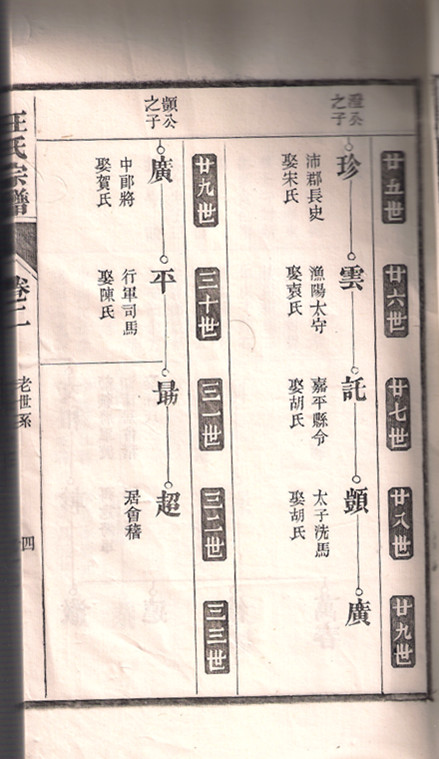 廿五世
廿六世
廿七世
廿八世
廿九世
澄公
之子
珍
沛郡長史
娶宋氏
雲
漁陽太守
娶袁氏
託
嘉平縣令
娶胡氏
顗
太子洗馬
娶胡氏
廣
廿九世
三十世
三一世
三二世
三三世
顗公
之子
廣
中郎將
娶賀氏
平
行軍司馬
娶陳氏
勗
超
居會稽
汪氏宗譜
卷二
老世系
四